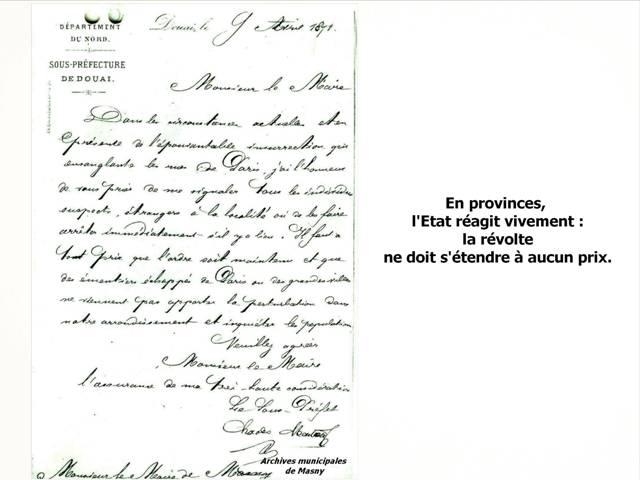 DÉPARTEMENT
DU NORD.
SOUS-PRÉFECTURE
DE DOUAI.
Douai, le 9 Avril 1871.
Monsieur le Maire
Dans les circonstances actuelles et en
présence de l'épouvantable insurrection qui
ensanglante les rues de Paris, j'ai l'honneur
de vous prier de me signaler tous les individus
suspects, étrangers à la localité ou de les faire
arrêter immédiatement s'il y a lieu. Il faut à
tout prix que l'ordre soit maintenu et que
des émeutiers échappés de Paris ou des grandes villes
ne viennent pas apporter la perturbation dans
notre arrondissement et inquiéter les populations
Veuillez agréer
Monsieur le Maire
l'assurance de ma très-haute considération
Le Sous-Préfet
Charles
Monsieur le Maire de Masny
Archives municipales
de Masny
En provinces,
l'Etat réagit vivement :
la révolte
ne doit s'étendre à aucun prix.